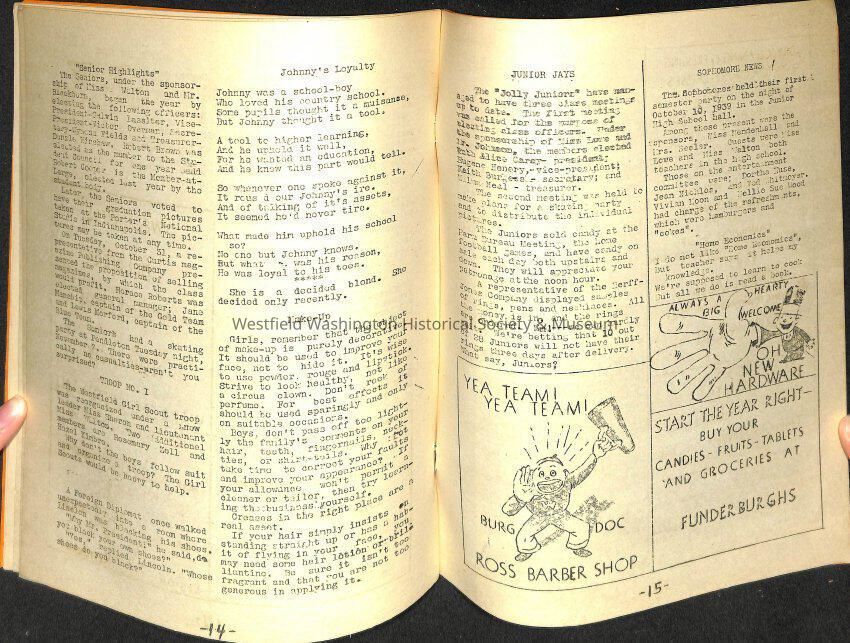 "Senior Highlights"
The Seniors, under the sponsor-
ship of Miss Walton and Mr.
Blackburn, began the year by
electing the following officers:
President-Calvin Lassiter, Vice-
President-Victor Overman, Secre-
tary-Wynona Fields and Treasurer-
Robert Brown was
elected as the member to the Stu-
dent Council for one year and
Cooper is the Member-at-
Large, elected last year by the
student body.
Later, the Seniors voted to
have their graduation pictures
taken at the Porter's National
Studio in Indianapolis. The pic-
tures may be taken at any time.
On Tuesday, October 31, a re-
presentative from the Curtis mag-
azine Publishing Company pre-
sented the proposition of selling
magazines, by which the class
would profit. Horace Roberts was
elected general manager; Jane
captain of the Gold Team
and Lewis Horton, captain of the
Blue Team.
The Seniors had a skating
party at Pendleton Tuesday night,
November 7. There were practi-
cally no casualties-aren't you
surprised?
TROOP NO. I
The Westfield Girl Scout troop
was reorganized under a new
leader Miss Sharon and lieutenant
Miss Walton. Two additional
members are, Rosemary Zell and
Hazel Fimbre.
Why don't the boys follow suit
and organize a troop? The Girl
Scouts would be happy to help.
A Foreign Diplomat once walked
unexpectedly into a room where
Lincoln was blacking his shoes.
"Why Mr. President" he said, do
you black your own shoes?"
"Yes," replied Lincoln. "Whose
shoes do you black?"
-14-
Johnny's Loyalty
Johnny was a school-boy
Who loved his country school.
Some pupils thought it a nuisanse,
But Johnny thought it a tool.
A tool to higher learning,
And he upheld it well,
For he wanted an education,
And he knew this part would tell.
So whenever one spoke against it,
It rous d our Johnny's ire.
And of talking of it's assets,
It seemed he'd never tire.
What made him uphold his school
so?
No one but Johnny knows.
But what was his reason,
He was loyal to his toes.
*****
She is a decided blond. She
decided only recently.
Make-Up
Girls, remember that the object
of make-up is purely decoration.
It should be used to improve your
face, not to hide it. It's wise
to use powder, rouge and lipstick.
Strive to look healthy, not like
a circus clown. Don't reek of
perfume. For best effects it
should be used sparingly and only
on suitable occasions.
Boys, don't pass off too light-
ly the family's comments on your
hair, teeth, fingernails, neck-
ties, or shirt-tails. Why not
take time to correct your faults
and improve your appearance? If
your allowance won't permit a
cleaner or tailor, then try learn-
ing the business yourself.
Creases in the right place are a
real asset.
If your hair simply insists on
standing straight up or has a hab-
it of flying in your face, you
may need some hair lotion or bril-
liantine. Be sure it isn't too
fragrant and that you are not too
generous in applying it.
JUNIOR JAYS
The "Jolly Juniors" have man-
aged to have three class meetings
up to date. The first meeting
was called for the purpose of
electing class officers. Under
the sponsorship of Miss Lowe and
Mr. Johnson, the members elected
Ruth Alice Carey- president;
Eugene Henery,-vice-president;
Keith Burgess - secretary; and
Neal - treasurer.
The second meeting was held to
make plans for a skating party
and to distribute the individual
pictures.
The Juniors sold candy at the
Farm Bureau Meeting, the home
football games, and have candy on
sale each day both upstairs and
down. They will appreciate your
patronage at the noon hour.
A representative of the Herff-
Jones Company displayed samples
of rings, pens and necklaces. All
the money is up and the rings
We're betting that 10 out
of 28 Juniors will not have their
rings three days after delivery.
What say, Juniors?
YEA TEAM!
YEA TEAM!
BURG
DOC
ROSS BARBER SHOP
SOPHOMORE NEWS
The Sophomores held their first
semester party on the night of
October 10, 1939 in the Junior
High School hall.
Among those present were the
sponsors, Miss Mendenhall and
Mrs. Keeler. Guests were Miss
Lowe and Miss Walton both
teachers in the high school.
Those on the entertainment
committee were; Dortha Dute,
Jean Nichlos, and Ted Whitmoyer.
Vivian Moon and Nellie Sue Reed
had charge of the refreshments,
which were hamburgers and
"cokes".
"Home Economics"
I do not like "Home Economics",
But teacher says it helps my
knowledge.
We're supposed to learn to cook
But all we do is read a book.
ALWAYS A
BIG
HEARTY
WELCOME
OH
NEW
HARDWARE
START THE YEAR RIGHT-
BUY YOUR
CANDIES - FRUITS - TABLETS
AND GROCERIES AT
FUNDERBURGHS
-15-
Westfield Washington Historical Society & Museum